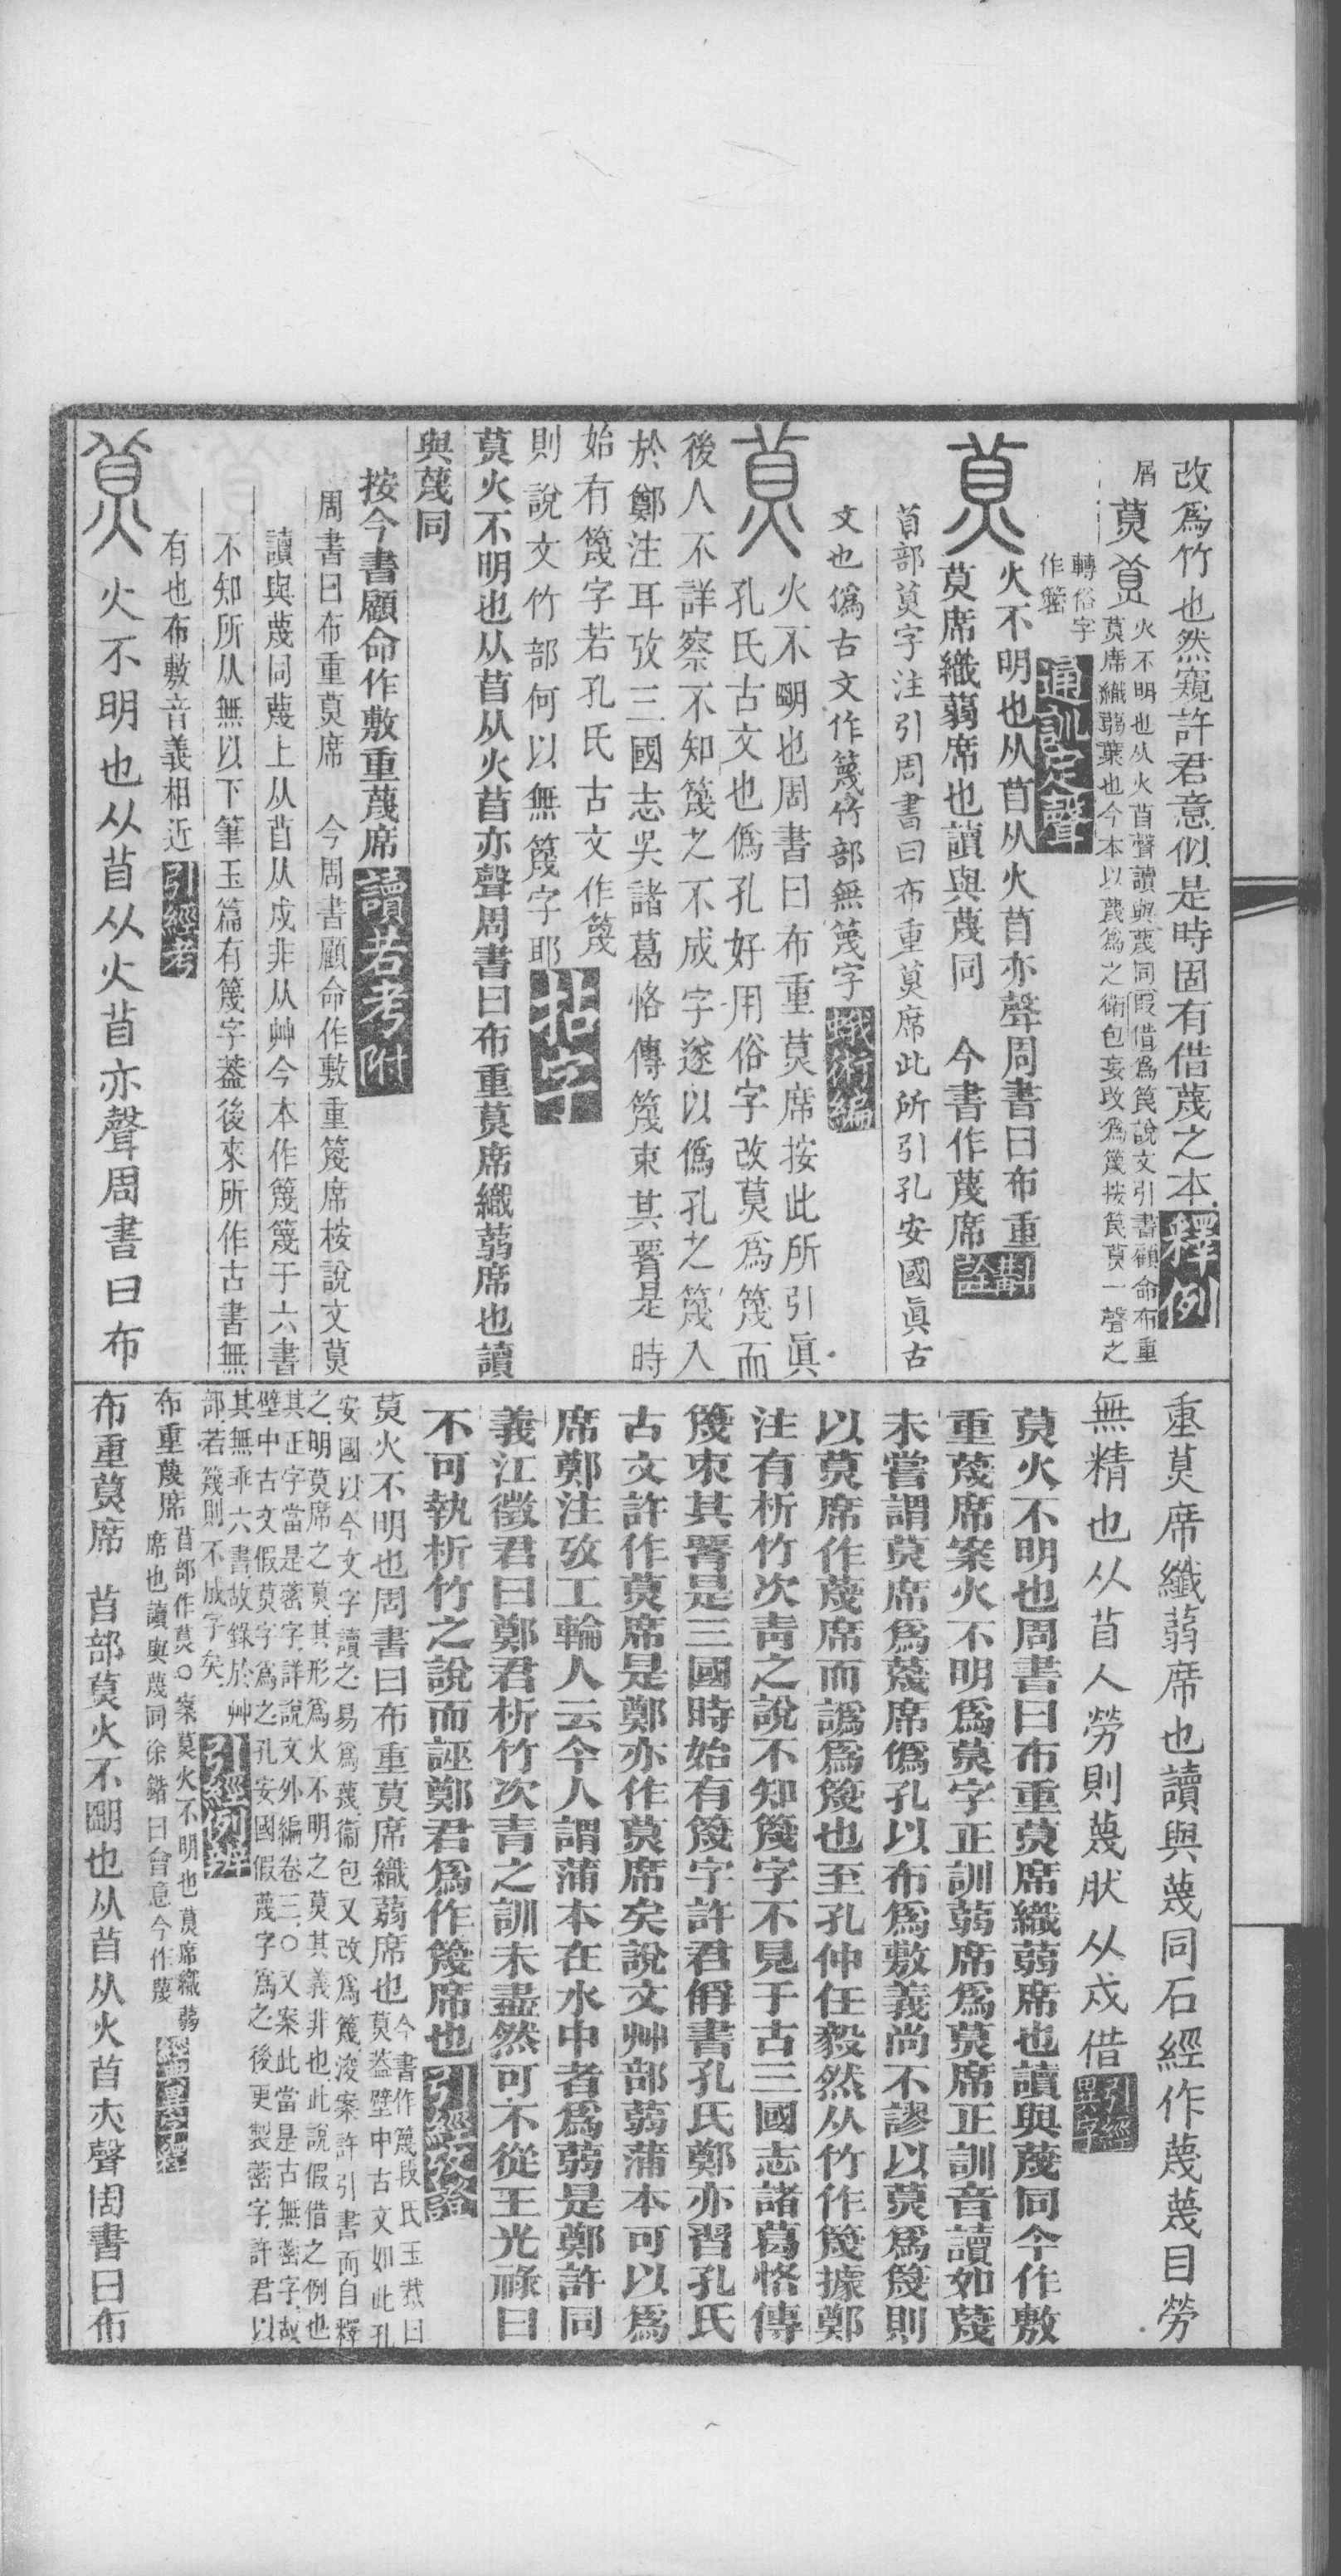 改爲竹也然窺許君意似是時固有借蔑之本釋例
屑莫 火不明也从火苜聲讀與蔑同叚借爲筤說文引書顧命布重
莫席織蒻葉也今本以蔑爲之衛包妄改爲篾按筤莫一聲之
轉俗字
作䉲 通訓定聲
火不明也从苜从火苜亦聲周書曰布重
莫席織蒻席也讀與蔑同 今書作蔑席 斠詮
苜部莫字注引周書曰布重莫席此所引孔安國眞古
文也僞古文作篾竹部無篾字 蛾術編
火不朙也周書曰布重莫席按此所引眞
孔氏古文也僞孔好用俗字改莫爲篾而
後人不詳察不知篾之不成字遂以僞孔之篾入
於鄭注耳攷三國志吳諸葛恪傳篾束其要是時
始有篾字若孔氏古文作篾
則說文竹部何以無篾字耶 拈字
莫火不明也从苜从火苜亦聲周書曰布重莫席織蒻席也讀
與蔑同
按今書顧命作敷重蔑席 讀若考附
周書曰布重莫席 今周書顧命作敷重篾席桉說文莫
讀與蔑同蔑上从苜从戍非从艸今本作篾篾于六書
不知所从無以下筆玉篇有篾字葢後來所作古書無
有也布敷音義相近 引經考
火不明也从苜从火苜亦聲周書曰布
重莫席纖蒻席也讀與蔑同石經作蔑蔑目勞
無精也从苜人勞則蔑肰从戍借 引經異字
莫火不明也周書曰布重莫席織蒻席也讀與蔑同今作敷
重蔑席案火不明爲莫字正訓蒻席爲莫席正訓音讀如蔑
未嘗謂莫席爲蔑席僞孔以布爲敷義尚不謬以莫爲篾則
以莫席作蔑席而譌爲篾也至孔仲任毅然从竹作篾據鄭
注有析竹次青之說不知篾字不見于古三國志諸葛恪傳
篾束其要是三國時始有篾字許君偁書孔氏鄭亦習孔氏
古文許作莫席是鄭亦作莫席矣說文艸部蒻蒲本可以爲
席鄭注攷工輪人云今人謂蒲本在水中者爲蒻是鄭許同
義江徵君曰鄭君析竹次青之訓未盡然可不從王光祿曰
不可執析竹之說而誣鄭君爲作篾席也 引經攷證
莫火不明也周書曰布重莫席織蒻席也 今書作篾段氏玉裁曰
莫葢壁中古文如此孔
安國以今文字讀之易爲蔑衞包又改爲篾浚案許引書而自釋
之明莫席之莫其形爲火不明之莫其義非也此說假借之例也
其正字當是䉲字詳說文外編卷三○又案此當是古無䉲字故
壁中古文假莫字爲之孔安國假蔑字爲之後更製䉲字許君以
其無乖六書故錄於艸
部若篾則不成字矣 引經例辨
布重蔑席 苜部作莫○案莫火不明也莫席織蒻
席也讀與蔑同徐鍇曰會意今作蔑
布重莫席 苜部莫火不朙也从苜从火苜亦聲周書曰布